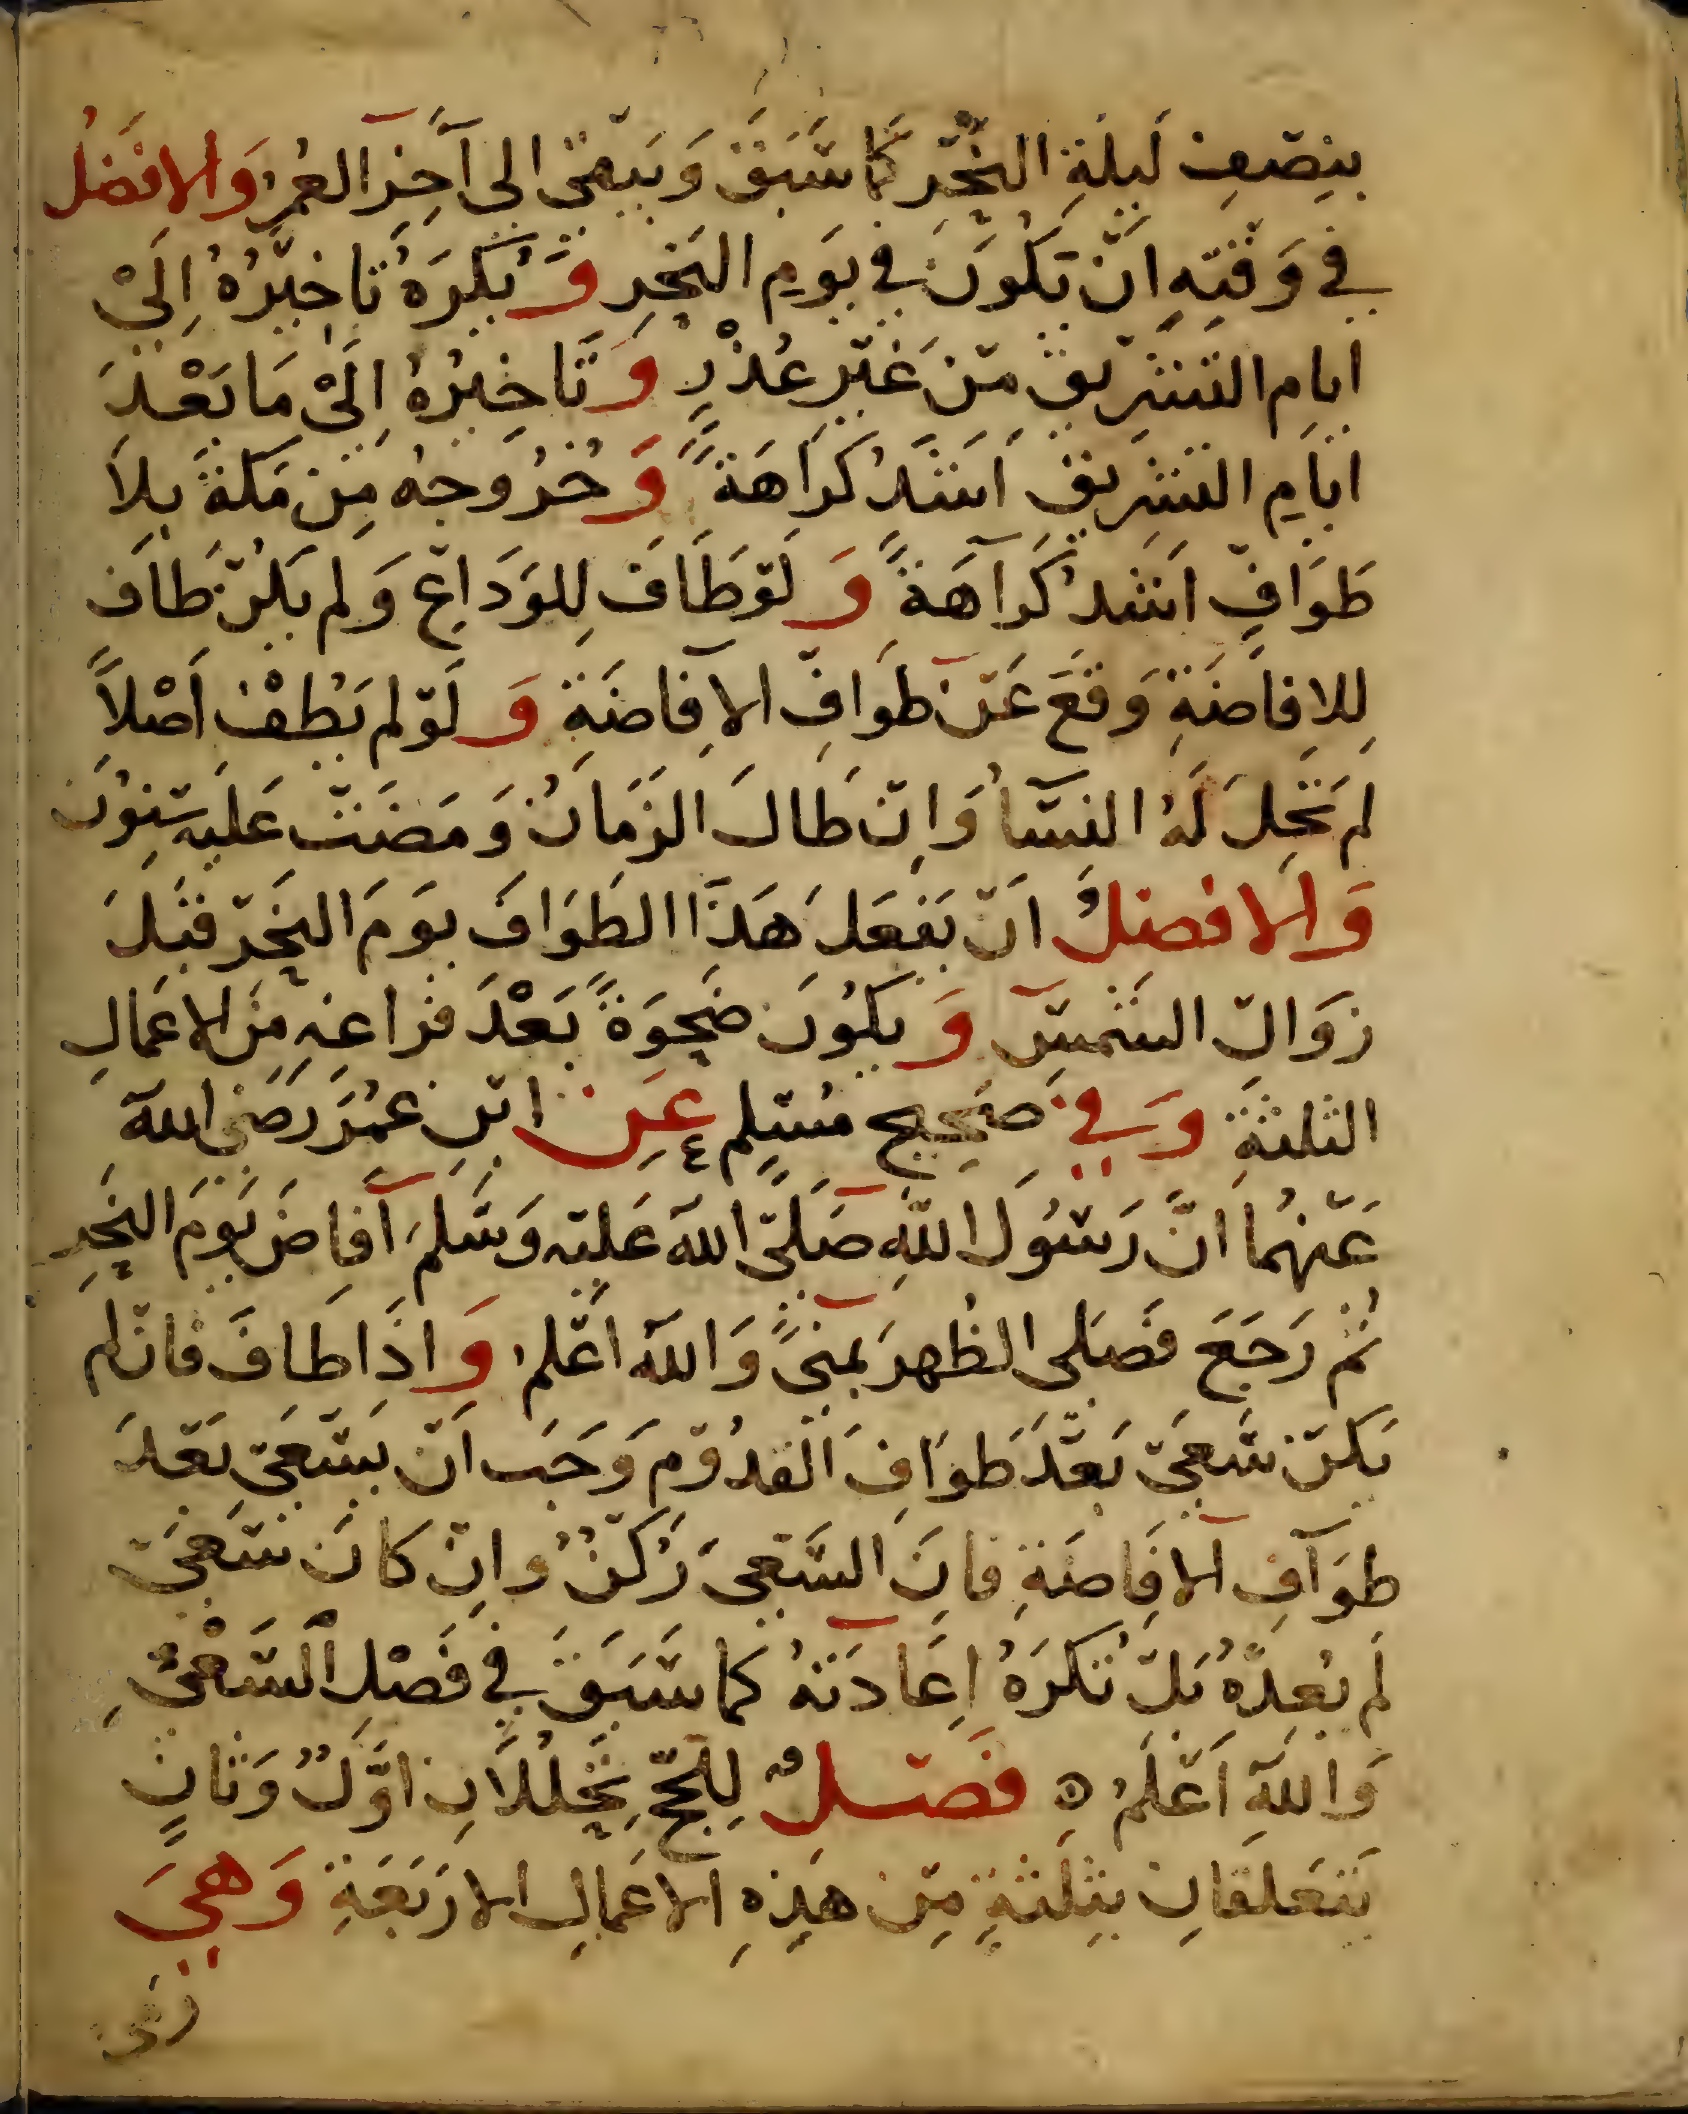 بنصف ليلة النحر كما سبق ويبقى الى آخر العمر والافضل
في وقته ان تكون في يوم النحر ويكره تاخيره الى
ايام التشريق من غير عذر وتاخيره الى ما بعد
ايام التشريق اشد كراهة وخروجه من مكة بلا
طواف اشد كراهة ولو طاف للوداع ولم يكن طاف
للافاضة وقع عن طواف الافاضة ولو لم يطف اصلا
لم تحل له النسآ وان طال الزمان ومضت عليه سنون
والافضل ان يفعل هذا الطواف يوم النحر قبل
زوال الشمس ويكون ضحوة بعد فراغه من الاعمال
الثلثة وفي صحيح مسلم عن ابن عمر رضي الله
عنهما ان رسول الله صلى الله عليه وسلم افاض يوم النحر
ثم رجع فصلى الظهر بمنى والله اعلم واذا طاف فان لم
يكن سعى بعد طواف القدوم وجب ان يسعى بعد
طواف الافاضة فان السعى ركن وان كان سعى
لم يعده بل تكره اعادته كما سبق في فصل السعي
والله اعلم ه فصل للحج تحللان اول وثان
يتعلقان بثلثة من هذه الاعمال الاربعة وهي
رمى